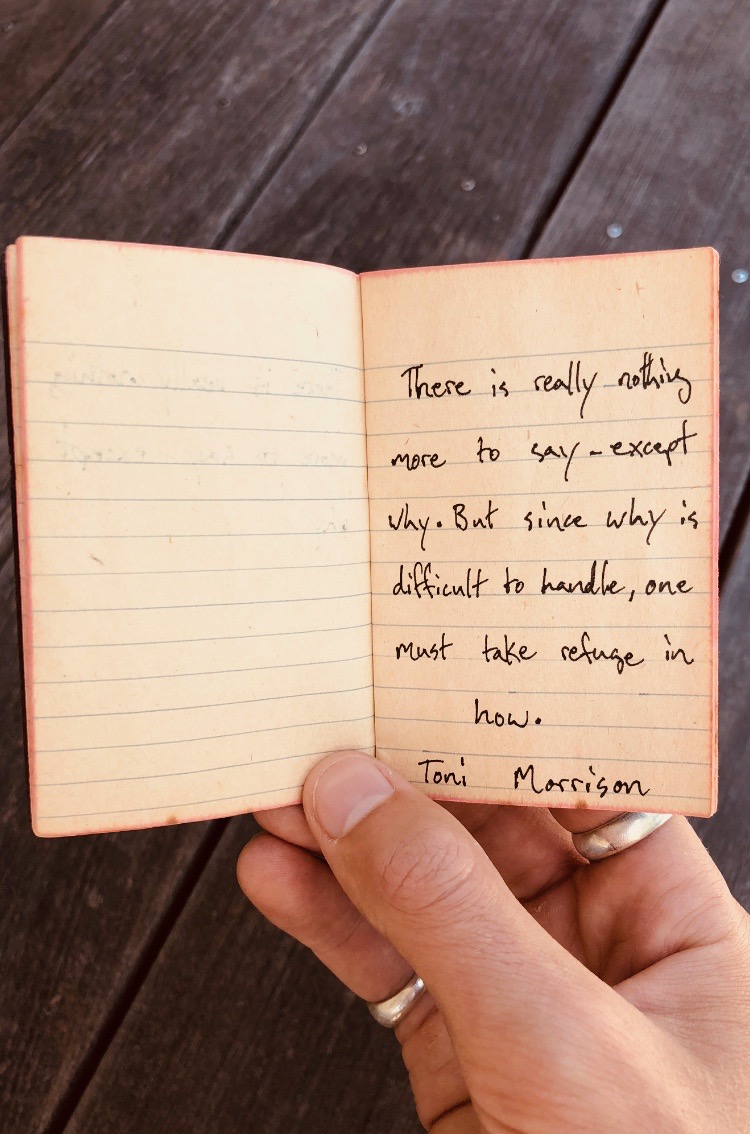 There is really nothing
more to say - except
why. But since why is
difficult to handle, one
must take refuge in
how.
Toni Morrison